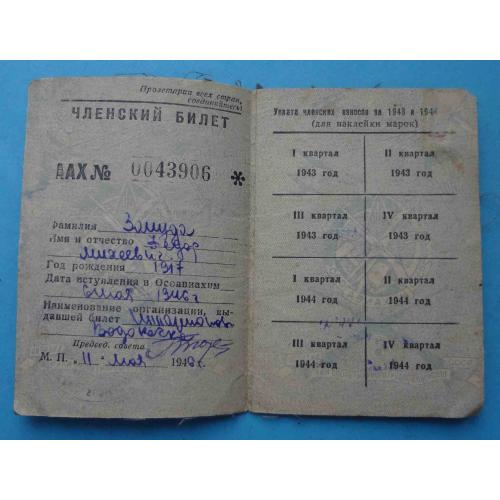 Пролетарии всех стран,
соединяйтесь!
ЧЛЕНСКИЙ БИЛЕТ
ААХ № 0043906 *
Фамилия
Имя и отчество
Михеевич
Год рождения 1917
Дата вступления в Осоавиахим
1946 г
Наименование организации, вы-
давшей билет
Председ. совета
М. П. 11 мая 1946 г.
Уплата членских взносов за 1943 и 1944
(для наклейки марок)
I квартал
1943 год
II квартал
1943 год
III квартал
1943 год
IV квартал
1943 год
I квартал
1944 год
II квартал
1944 год
III квартал
1944 год
IV квартал
1944 год